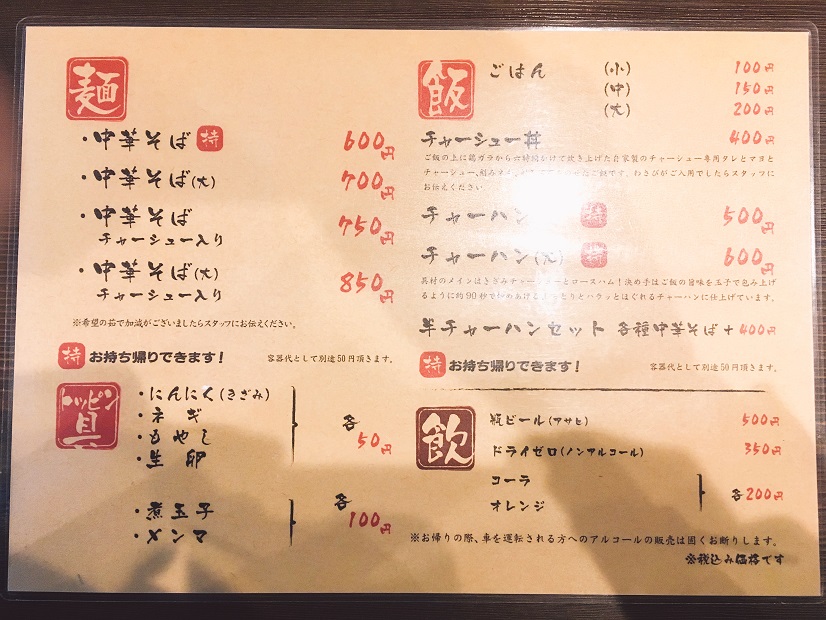 麺
・中華そば 持 600円
・中華そば(大) 700円
・中華そば
チャーシュー入り 750円
・中華そば(大)
チャーシュー入り 850円
※希望の茹で加減がございましたらスタッフにお伝えください。
持 お持ち帰りできます! 容器代として別途50円頂きます。
トッピン具
・にんにく(きざみ)
・ネギ
・もやし
・生卵
各50円
・煮玉子
・メンマ
各100円
飯
ごはん (小) 100円
(中) 150円
(大) 200円
チャーシュー丼 400円
ご飯の上に鶏ガラから六時間かけて炊き上げた自家製のチャーシュー専用タレとマヨと
チャーシュー、刻みネギ せたご飯です。わさびがご入用でしたらスタッフに
お伝えください
チャーハン 持 500円
チャーハン(大) 持 600円
具材のメインはきざみチャーシューとロースハム!決め手はご飯の旨味を玉子で包み上げ
るように約90秒で炒めあげる しっとりとパラッとほぐれるチャーハンに仕上げています。
半チャーハンセット 各種中華そば+400円
持 お持ち帰りできます! 容器代として別途50円頂きます。
飲
瓶ビール(アサヒ) 500円
ドライゼロ(ノンアルコール) 350円
コーラ
オレンジ
各200円
※お帰りの際、車を運転される方へのアルコールの販売は固くお断りします。
※税込み価格です